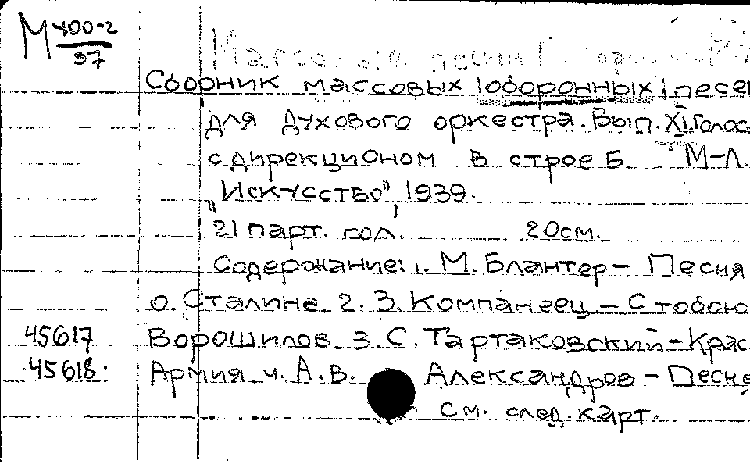 М 400-2
37
Массовые песни
Сборник массовых |оборонных| песе
для духового оркестра. Вып. XI. Голос
с дирекционом в строе Б. М-Л.
"Искусство", 1939.
21 парт. гол. 20см.
Содержание: 1. М. Блантер – Песня
о Сталине. 2. З. Компанеец – С тобою
45617 Ворошилов. 3. С. Тартаковский – Крас
45618. Армия 4. А.В. Александров – Песне
См. след. карт.